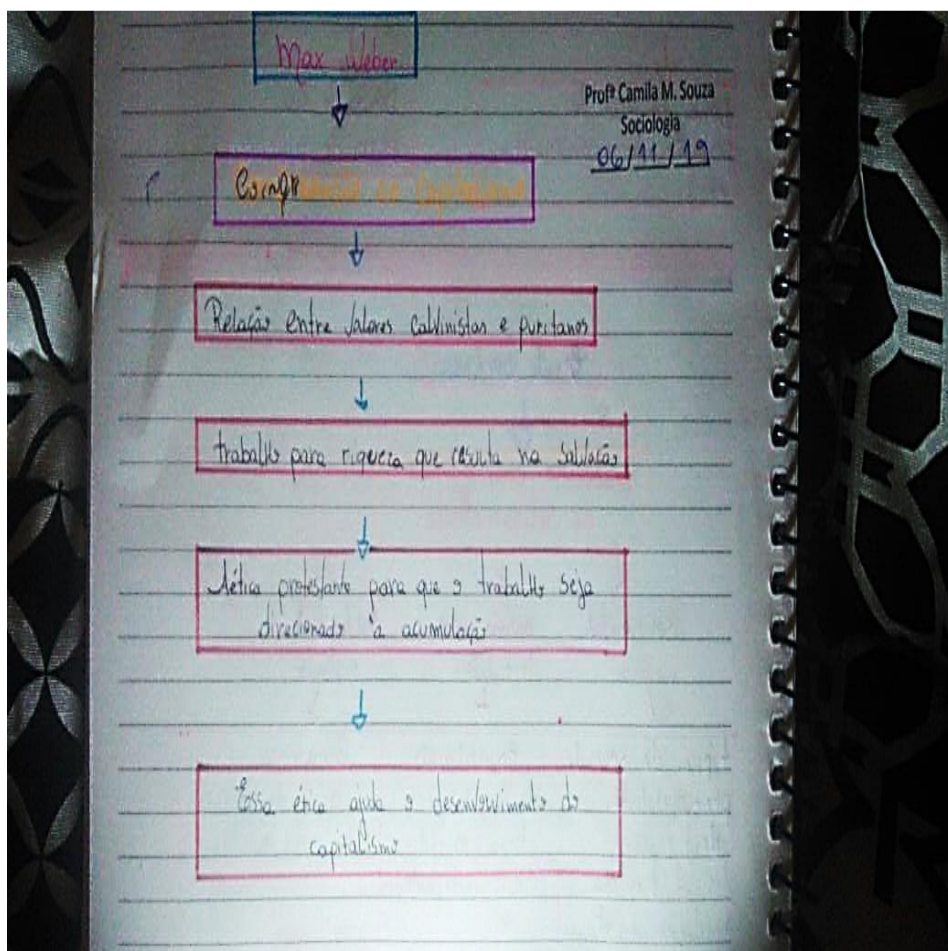 Max Weber
Profª Camila M. Souza
Sociologia
06/11/19
Compreensão do Capitalismo
Relação entre Valores calvinistas e puritanos
trabalho para riqueza que resulta na salvação
A ética protestante para que o trabalho seja
direcionado à acumulação
Essa ética ajuda o desenvolvimento do
capitalismo